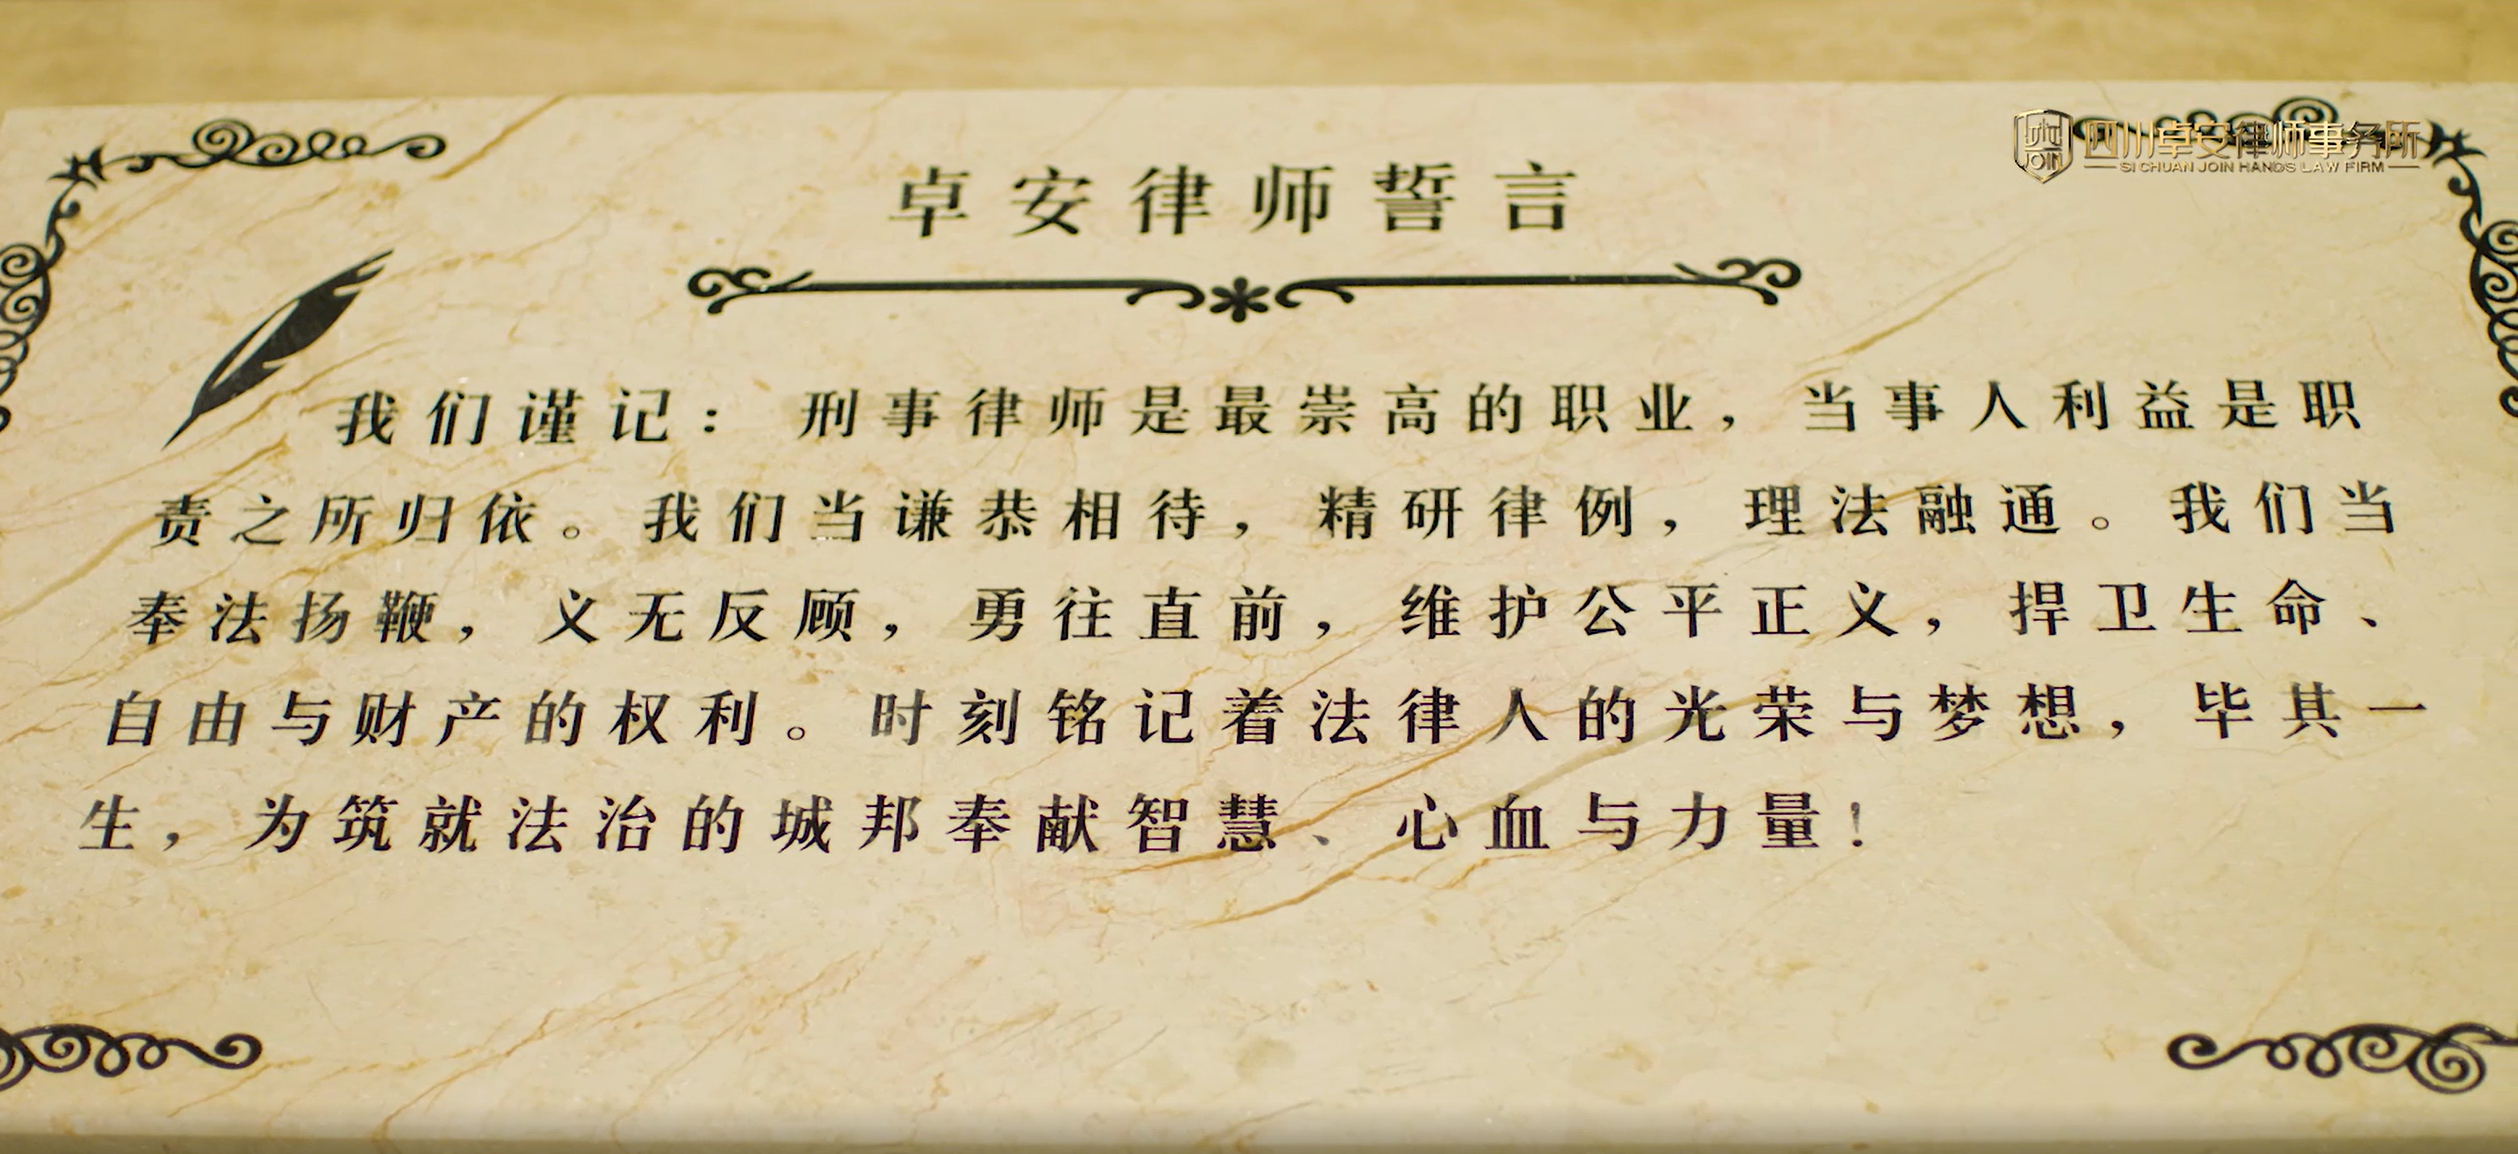 四川卓安律师事务所
SI CHUAN JOIN HANDS LAW FIRM
JOIN
卓安律师誓言
我们谨记：刑事律师是最崇高的职业，当事人利益是职
责之所归依。我们当谦恭相待，精研律例，理法融通。我们当
奉法扬鞭，义无反顾，勇往直前，维护公平正义，捍卫生命、
自由与财产的权利。时刻铭记着法律人的光荣与梦想，毕其一
生，为筑就法治的城邦奉献智慧、心血与力量！